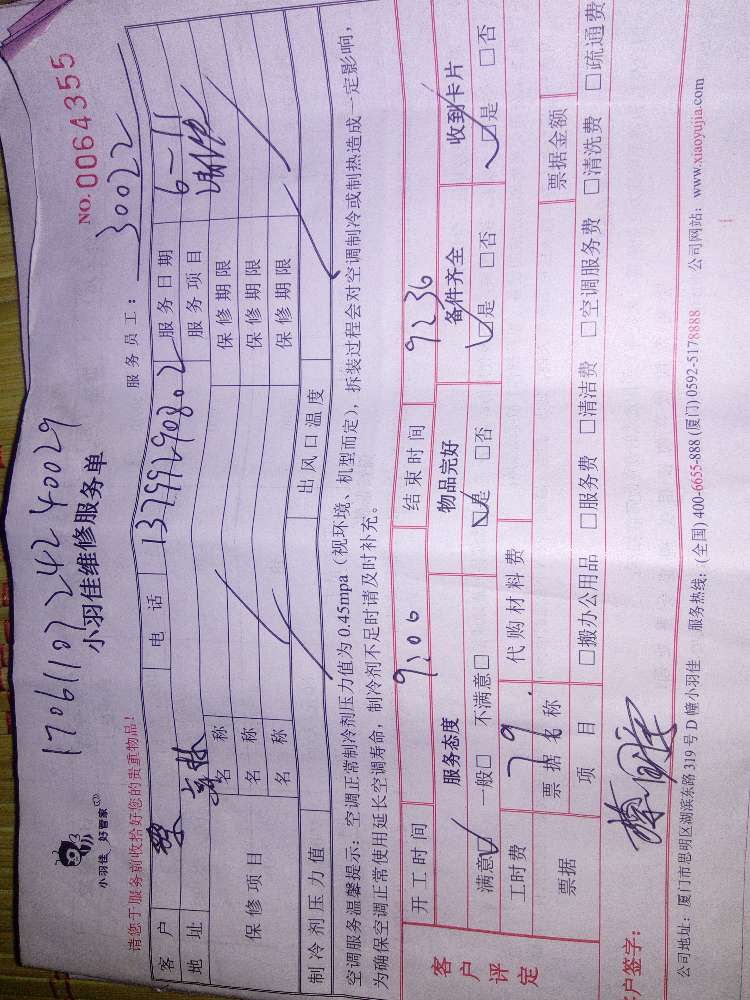 17061107242240029
NO.0064355
小羽佳 好管家
小羽佳维修服务单
请您于服务前收拾好您的贵重物品！
服务员工：30022
客户 电话 13799290802 服务日期 6-11
地址 服务项目
保修项目 名称 保修期限
名称 保修期限
名称 保修期限
制冷剂压力值 出风口温度
空调服务温馨提示：空调正常制冷剂压力值为 0.45mpa（视环境、机型而定），拆装过程会对空调制冷或制热造成一定影响，
为确保空调正常使用延长空调寿命，制冷剂不足时请及时补充。
客户评定
开工时间 9:06 结束时间 9:36
服务态度 物品完好 备件齐全 收到卡片
满意□ 一般□ 不满意□ □是 □否 □是 □否 □是 □否
工时费 79 代购材料费
票据 票据名称 票据金额
项目 □搬办公用品 □服务费 □清洁费 □空调服务费 □清洗费 □疏通费
客户签字：
公司地址：厦门市思明区湖滨东路 319 号 D 幢小羽佳 服务热线：(全国) 400-6655-888 (厦门) 0592-5178888 公司网站：www.xiaoyujia.com